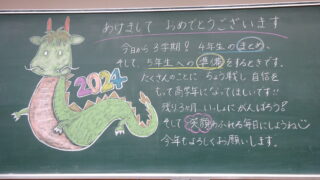 あけまして おめでとうございます
今日から3学期!! 4年生のまとめ、
そして、5年生への準備をするときです。
たくさんのことに ちょう戦し 自信を
もって高学年になってほしいです!!
残り3ヶ月 いっしょにがんばろう!
そして笑顔あふれる毎日にしようね
今年もよろしくお願いします。
2024